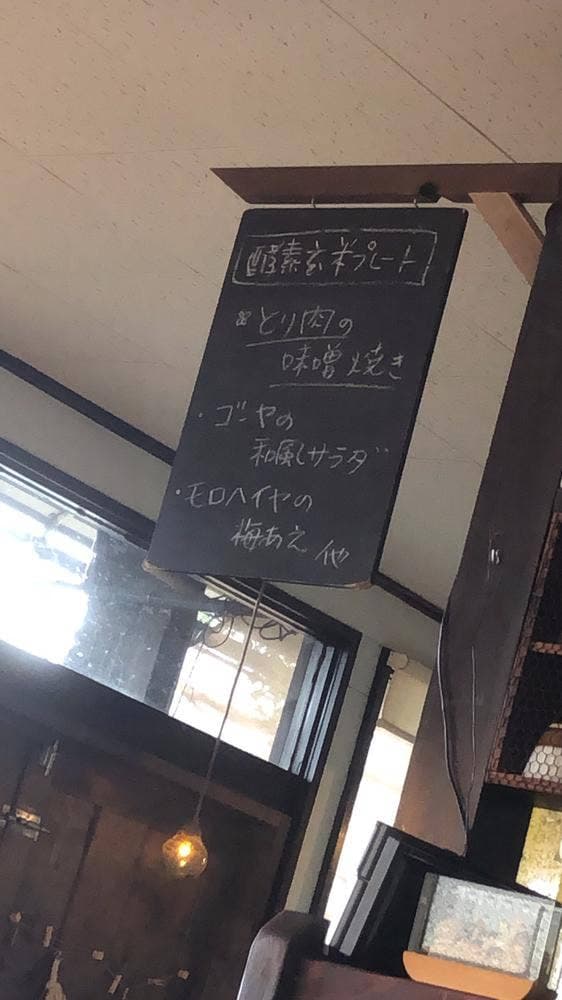 酵素玄米プレート
※とり肉の
味噌焼き
・ゴーヤの
和風サラダ
・モロヘイヤの
梅あえ 他